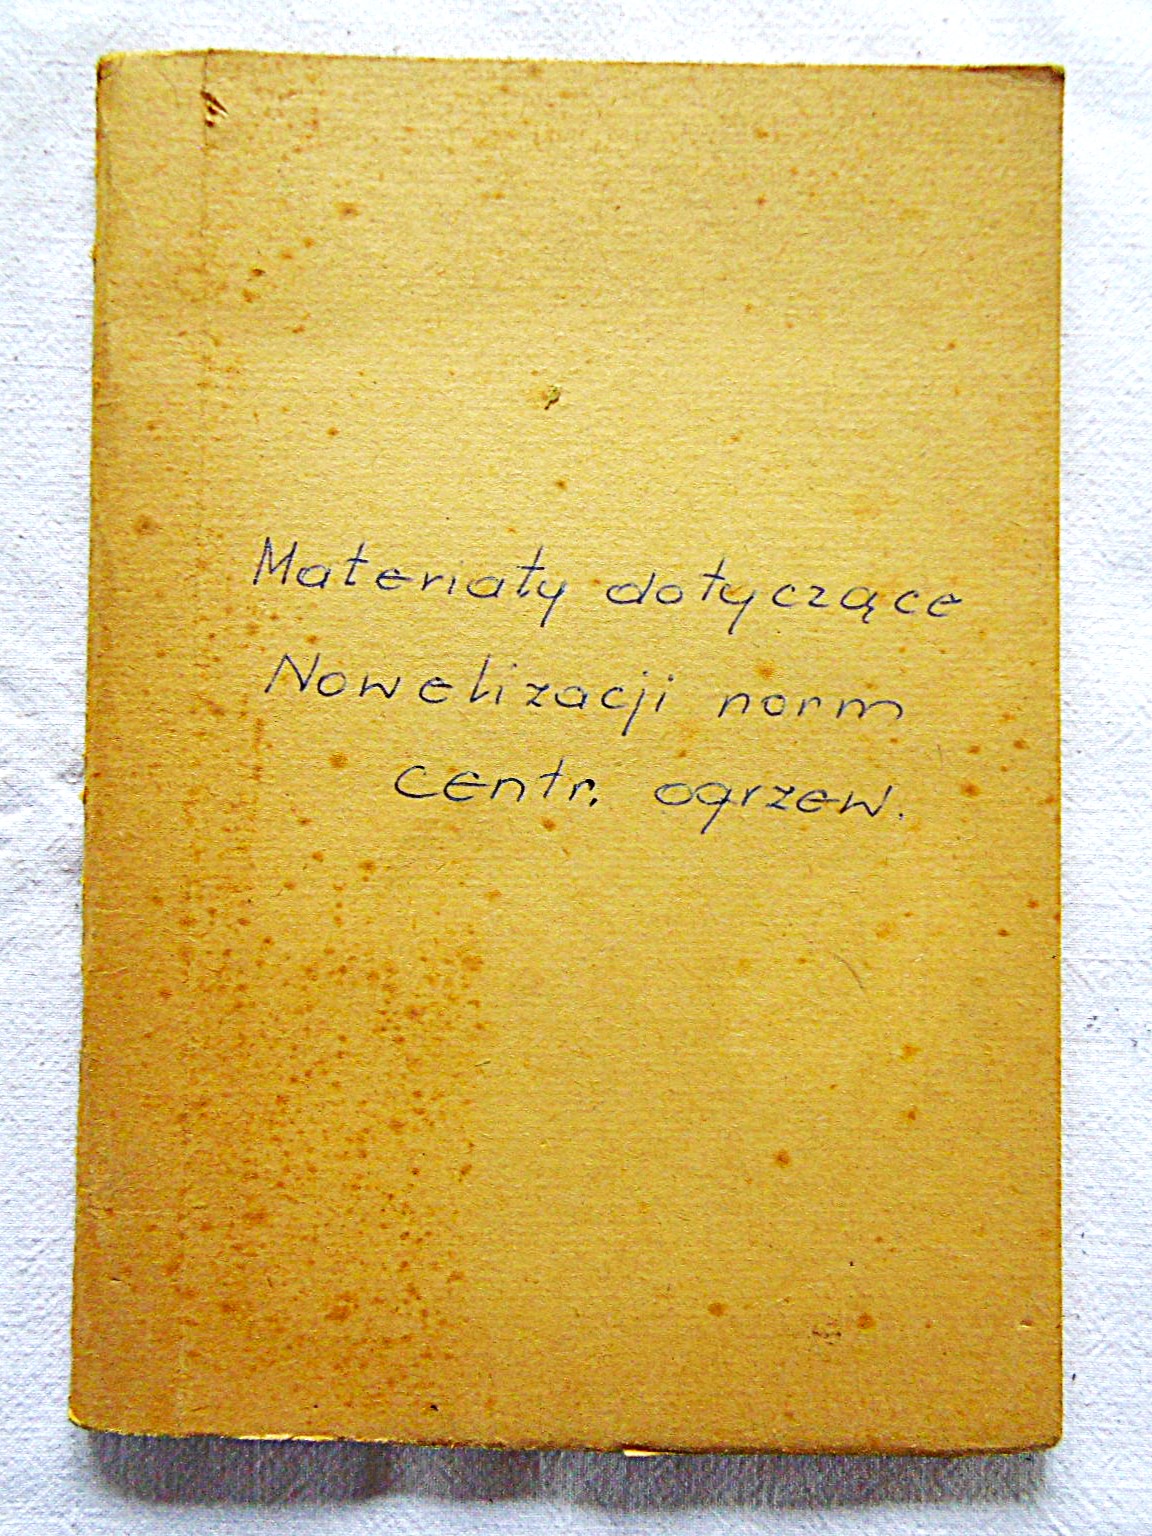 Materiały dotyczące
Nowelizacji norm
centr. ogrzew.